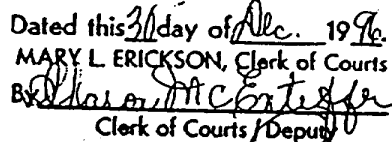 Dated this 31 day of Dec. 1996.
MARY L. ERICKSON, Clerk of Courts
By Sharon McEnteffer
Clerk of Courts / Deputy